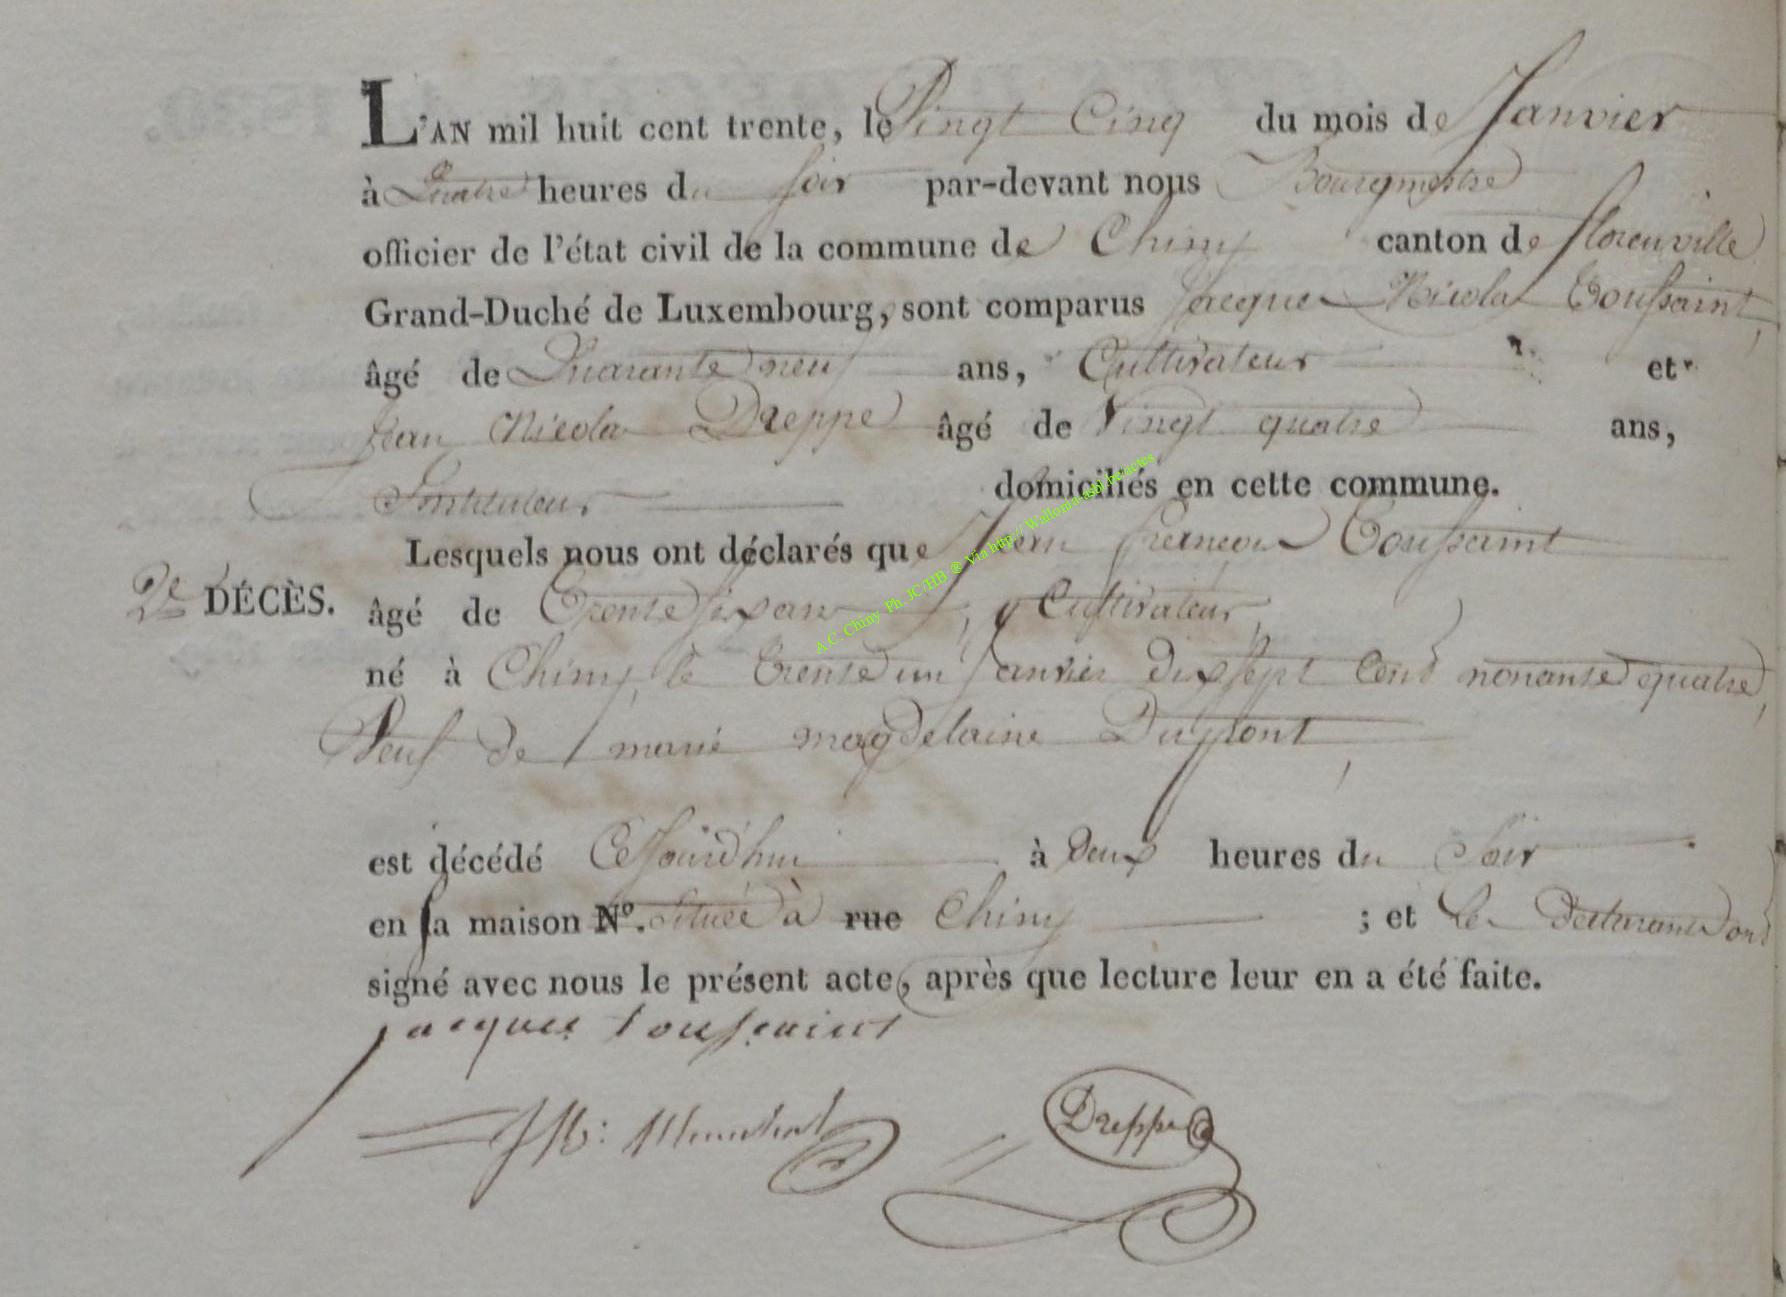 L'AN mil huit cent trente, le Vingt Cinq du mois de Janvier
à Quatre heures du soir par-devant nous Bourgmestre
officier de l'état civil de la commune de Chiny canton de florenville
Grand-Duché de Luxembourg, sont comparus Jacque Nicolas Toussaint,
âgé de Quarante neuf ans, Cultivateur et
Jean Nicolas Dreppe âgé de Vingt quatre ans,
Instituteur domiciliés en cette commune.
Lesquels nous ont déclarés que Jean francois Toussaint
2e DÉCÈS. âgé de Trente six ans, Cultivateur,
né à Chiny, le trente un Janvier dix sept Cent nonante quatre,
Veuf de marie magdelaine Dupont,
est décédé Cejourd'hui à Deux heures du Soir
en sa maison N°. située à rue Chiny ; et les Déclarants ont
signé avec nous le présent acte, après que lecture leur en a été faite.
jacques toussaint
Dreppe
A.C. Chiny Ph. JC/HB ® Via http://Wallonia-asbl.be/actes